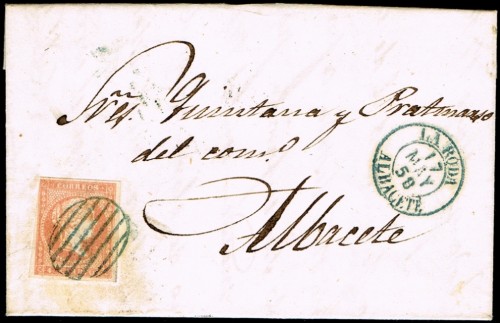 Sres. Quintana y Pratmarso
del com.º
Albacete
LA RODA
17
MAY
58
ALBACETE
CORREOS